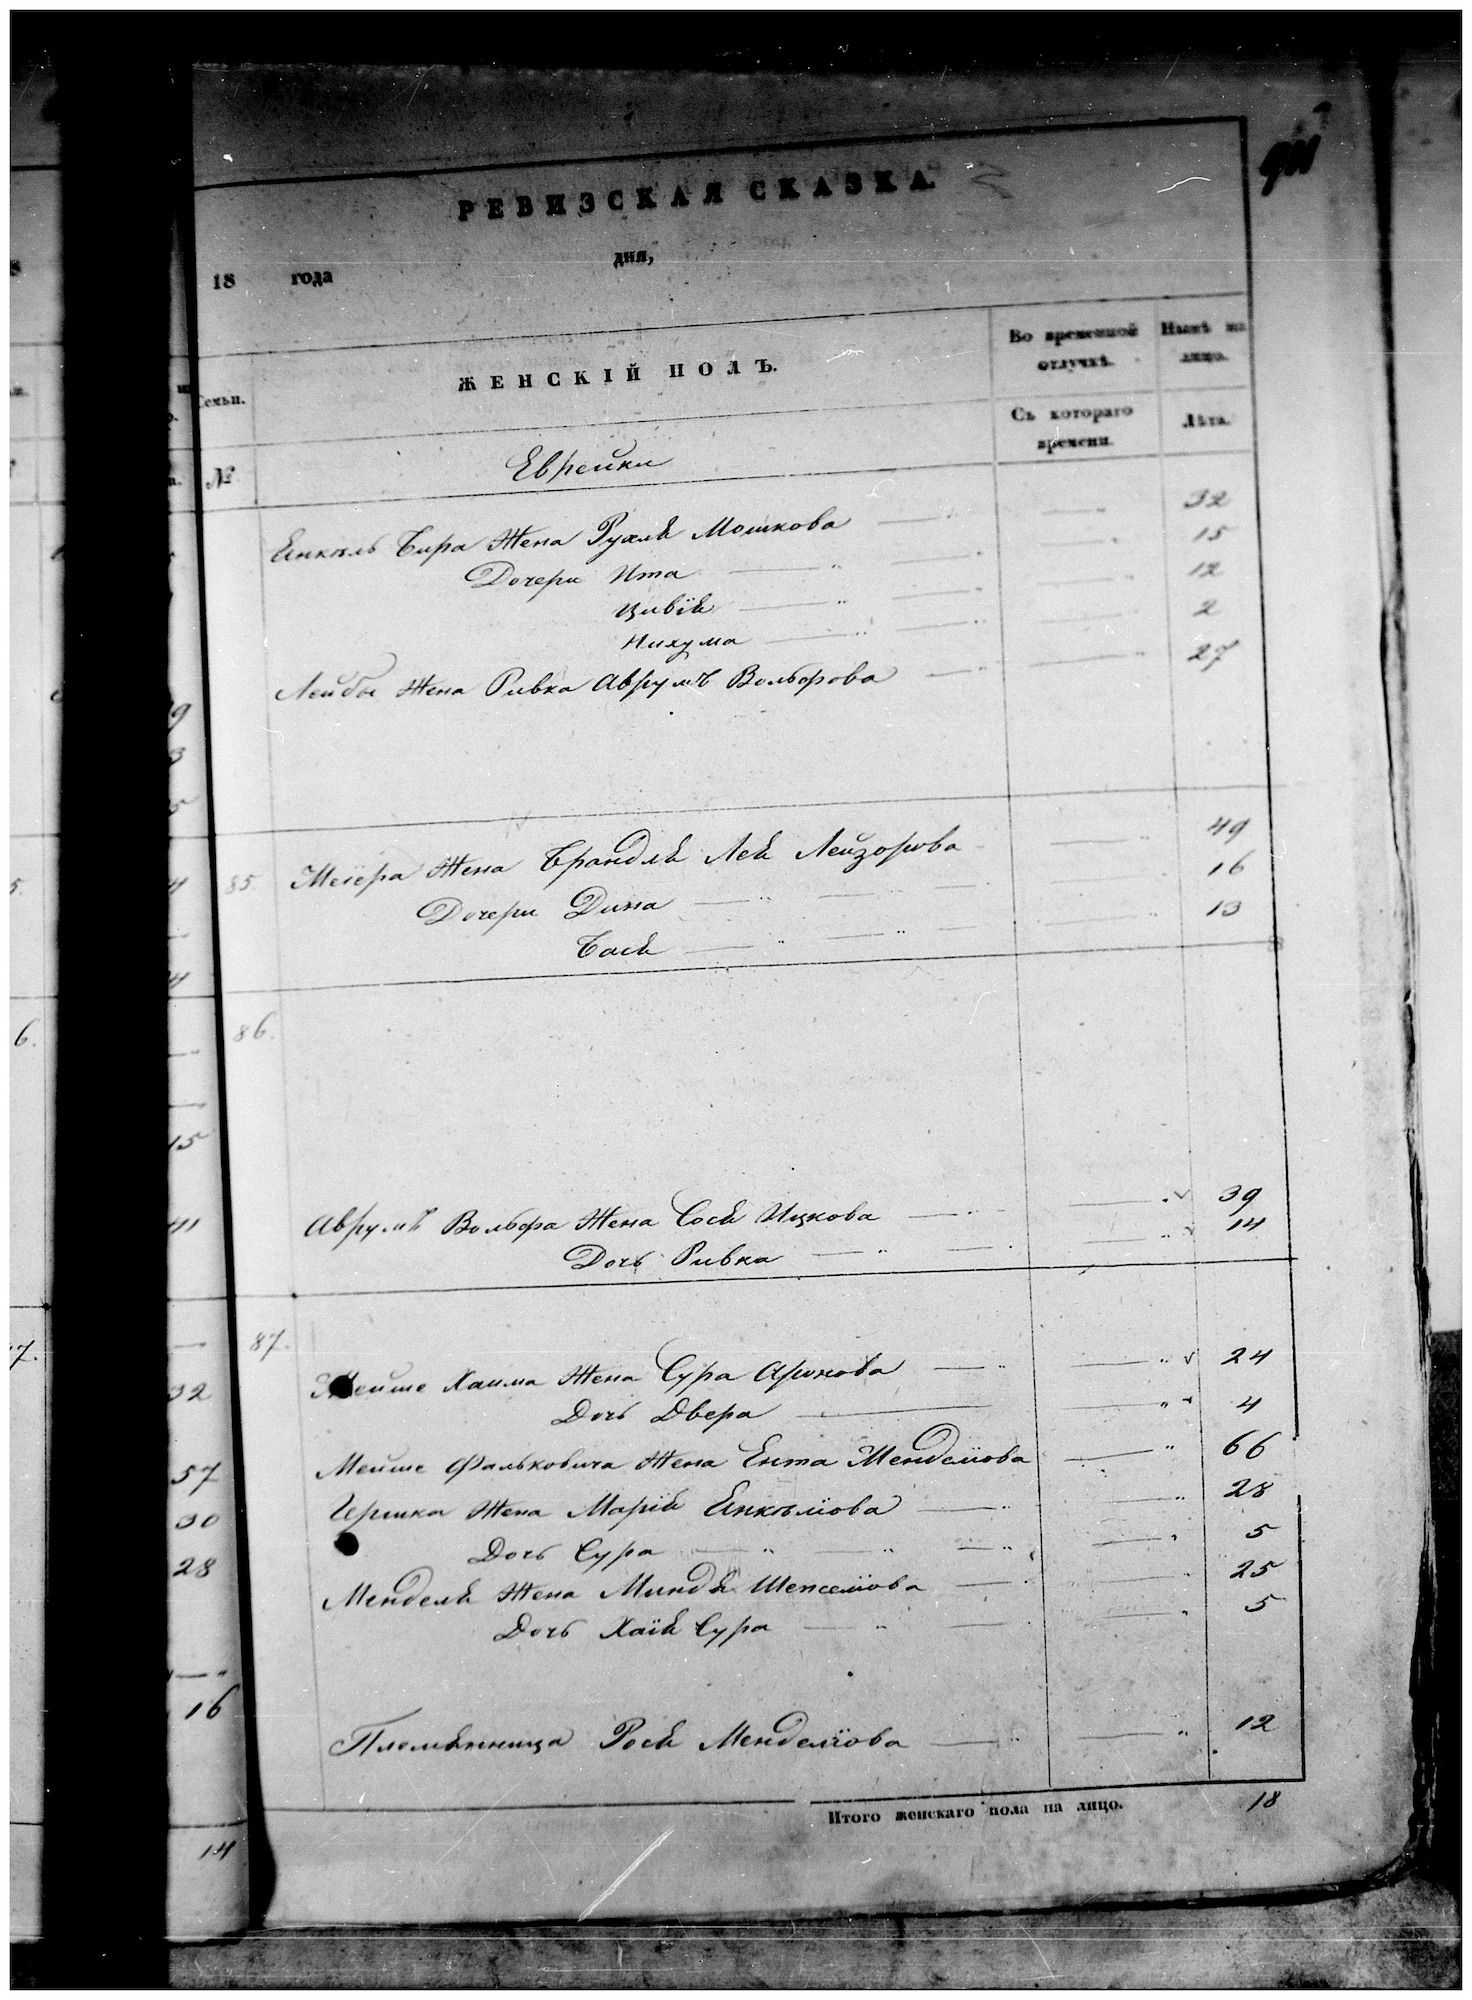 911
РЕВИЗСКАЯ СКАЗКА.
18 года дня,
Семьи. ЖЕНСКІЙ ПОЛЪ. Во временной отлучкѣ. Нынѣ на лицо.
Съ котораго времени. Лѣта.
№ Еврейки
Янкель Бера Жена Рухля Мошкова 32
Дочери Ита 15
Цивія 12
Нихума 2
Лейбы Жена Ривка Аврумъ Вольфова 27
85. Меера Жена Брандля Лея Лейзорова 49
Дочери Дина 16
Бася 13
86.
Аврумъ Вольфа Жена Сося Ицкова 39
Дочь Ривка 14
87.
Мейше Хаима Жена Сура Аронова 24
Дочь Двера 4
Мейше Фальковича Жена Ента Менделіова 66
Гершка Жена Марія Янкеліова 28
Дочь Сура 5
Менделя Жена Миндя Шепселіова 25
Дочь Хаія Сура 5
Племянница Рося Менделіова 12
Итого женскаго пола на лицо. 18
6.
9
3
5
15
32
57
30
28
16
14